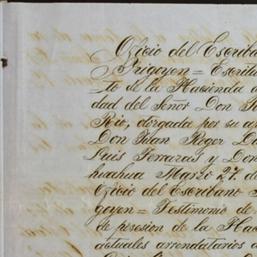 Oficio del Escriba
Yrigoyen = Escritu
to de la Hacienda d
dad del Señor Don F
Rio, otorgada por su a
Don Juan Roger D
Luis Terrazas y Don
huahua Marzo 27. d
Oficio del Escribano
goyen = Testimonio de
de posesion de la Hac
actuales arrendatarios d